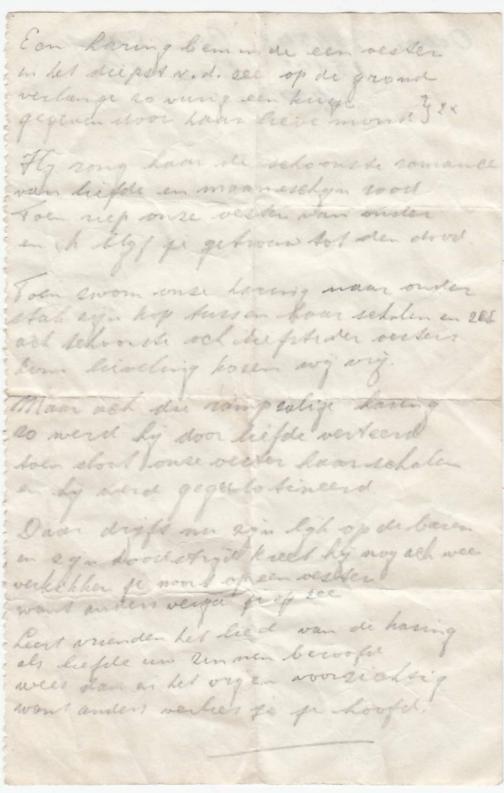 Een haring beminde een oester
in het diepst v.d. zee op de grond
verlange zo vurig een kusje
gegeven door haar lieve mond } 2x
Hij zong haar de schoonste romance
van liefde en maaneschijn rood
Toen riep onze oester van onder
en ik blijf je getrouw tot den dood
Toen zwom onze haring naar onder
stak zijn kop tussen haar schalen en zei
ach schoonste och liefste der oesters
kom lieveling kozen wij vrij.
Maar ach die rampzalige haring
zo werd hij door liefde verteerd
toen sloot onze oester haar schalen
en hij werd geguilotineerd
Daar drijft nu zijn lijk op de baren
en zijn doodstrijd kreet hij nog ach wee
je nooit op een oester
want anders verga je op zee
Leert vrienden het lied van de haring
als liefde uw zinnen beroofd
wees dan in het vrijen voorzichtig
want anders verlies je je hoofd.